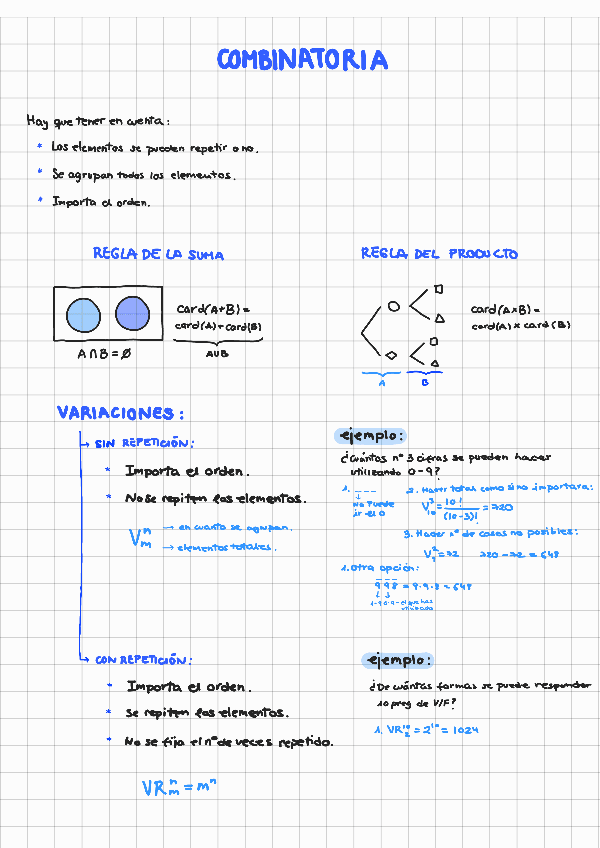 COMBINATORIA
Hay que tener en cuenta:
* Los elementos se pueden repetir o no.
* Se agrupan todos los elementos.
* Importa el orden.
REGLA DE LA SUMA
card(A+B) =
card(A)+card(B)
A∪B
A∩B=Ø
REGLA DEL PRODUCTO
card(A×B) =
card(A) × card(B)
A B
VARIACIONES:
SIN REPETICIÓN:
* Importa el orden.
* No se repiten los elementos.
V_m^n → en cuanto se agrupan.
→ elementos totales.
ejemplo:
¿Cuántos nº 3 cifras se pueden hacer
utilizando 0-9?
1. _ _ _
↓
No puede
ir el 0
2. Hacer total como si no importara:
V_10^3 = 10! / (10-3)! = 720
3. Hacer nº de casos no posibles:
V_9^2 = 72 720 - 72 = 648
1. Otra opción:
9 9 8 = 9·9·8 = 648
↓ ↓
1-9 0-9 - el que has
utilizado
CON REPETICIÓN:
* Importa el orden.
* Se repiten los elementos.
* No se fija el nº de veces repetido.
VR_m^n = m^n
ejemplo:
¿De cuántas formas se puede responder
10 preg de V/F?
1. VR_2^10 = 2^10 = 1024